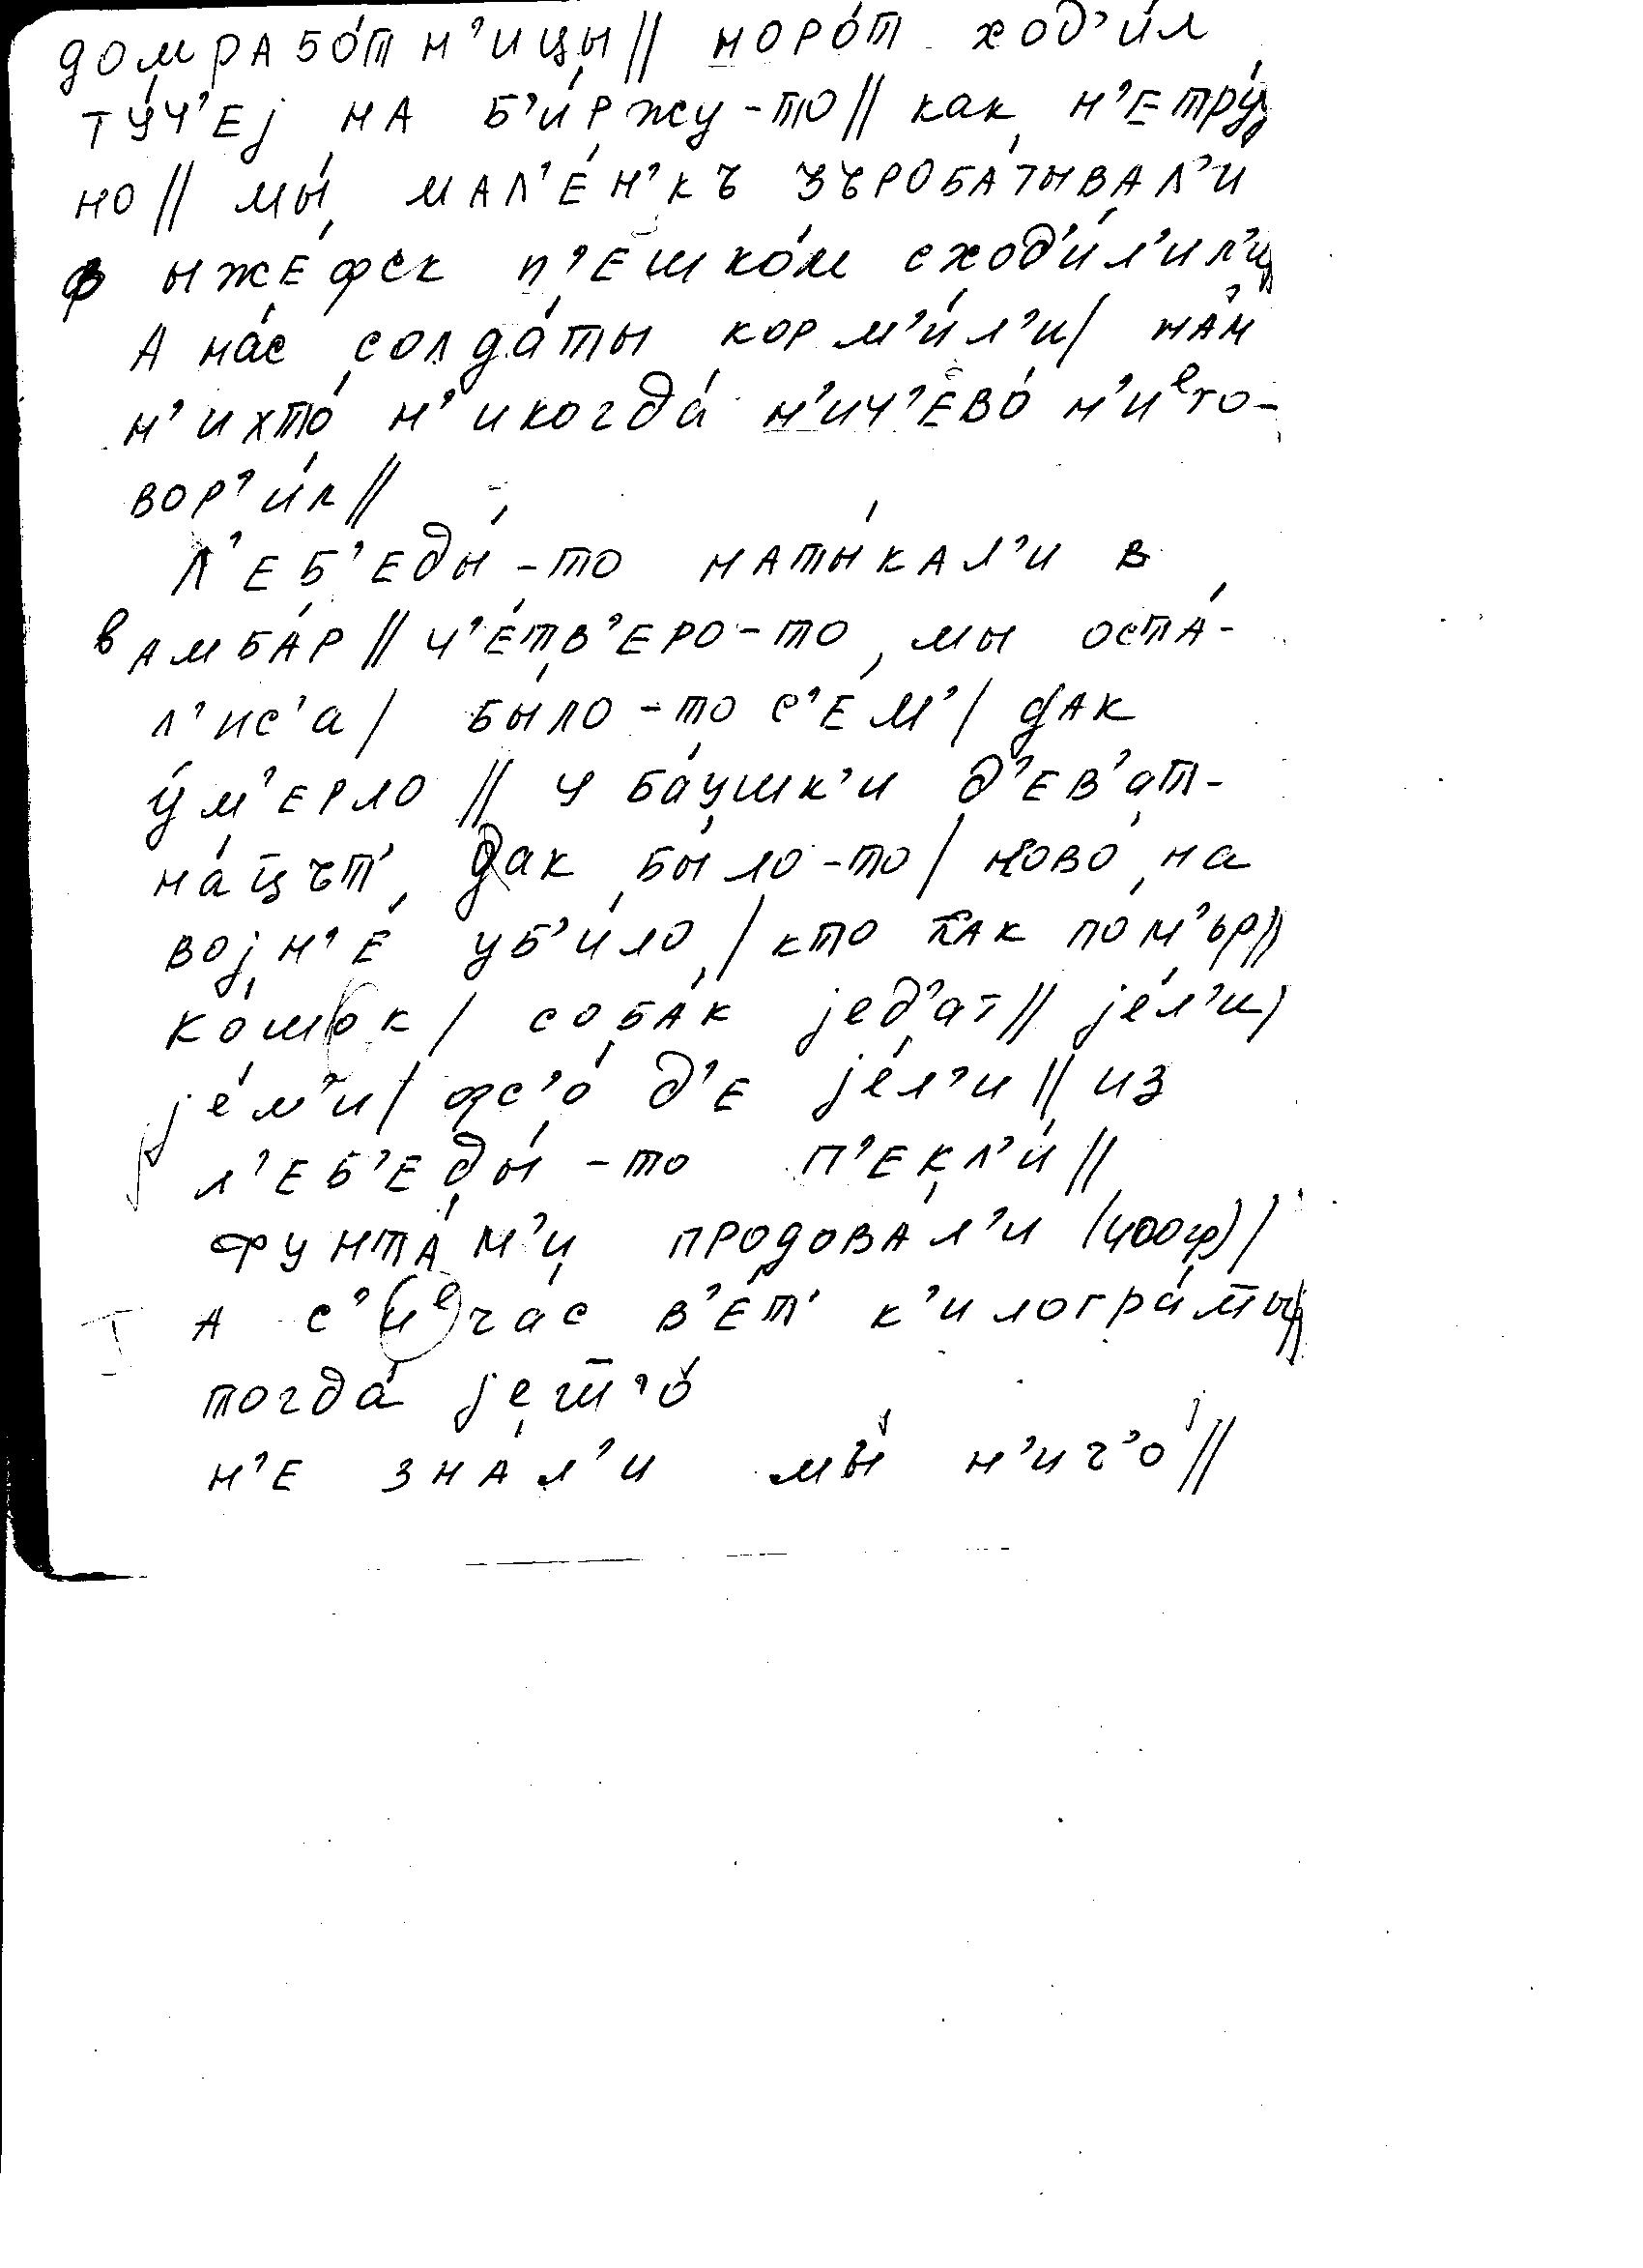 домрабо́тн'ицы// норо́т ход'и́л
ту́ч'еј на б'и́ржу-то// как н'етру́д
но// мы́ мал'е́н'къ зъроба́тывал'и
ф ыже́фск п'ешко́м сход'и́л'ил'и//
А на́с солда́ты корм'и́л'и/ на́м
н'ихто́ н'икогда́ н'ич'ево́ н'иᵉго-
вор'и́л//
Л'еб'еды́-то наты́кал'и в
в амба́р// ч'е́тв'еро-то мы оста́-
л'ис'а/ бы́ло-то с'е́м'/ дак
у́м'ерло// у ба́ушк'и д'ев'ат-
на́цът' дак бы́ло-то/ ково́ на
војн'е́ уб'и́ло/ кто как по́м'ър//
ко́шок/ соба́к јед'ат// је́л'и/
је́л'и/ фс'о́ д'е је́л'и// из
л'еб'еды́-то п'екл'и́//
фунта́м'и продова́л'и (400гр)/
а с'иᵉча́с в'е́т' к'илогра́м̄ы//
тогда́ јеш̄'о́
н'е зна́л'и мы́ н'ич'о́//